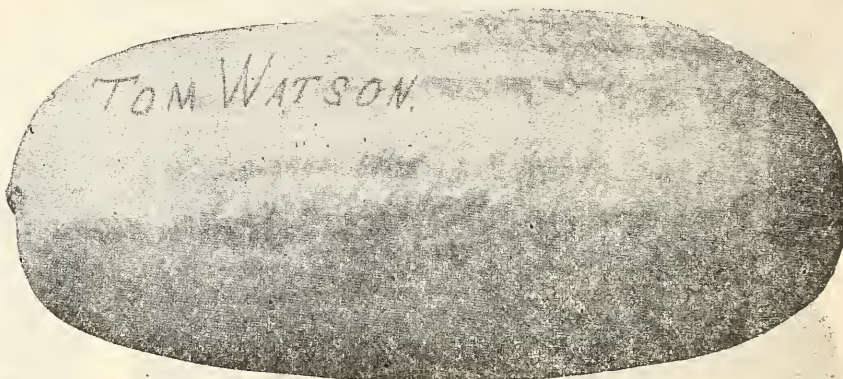 TOM WATSON.